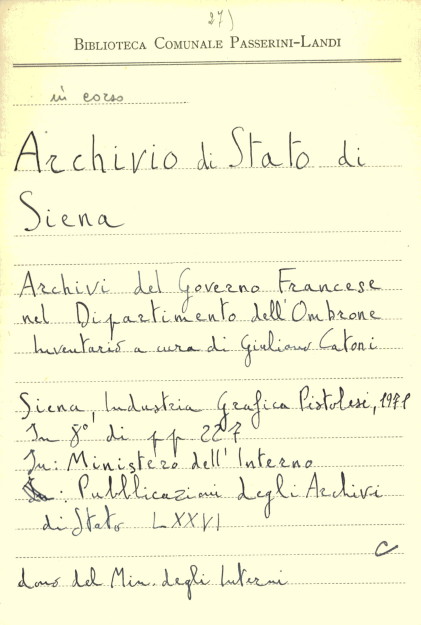 27)
BIBLIOTECA COMUNALE PASSERINI-LANDI
in corso
Archivio di Stato di
Siena
Archivi del Governo Francese
nel Dipartimento dell'Ombrone
Inventario a cura di Giuliano Catoni
Siena, Industria Grafica Pistolesi, 1971
In 8° di pp 227
In: Ministero dell'Interno
: Pubblicazioni degli Archivi
di Stato LXXVI
C
dono del Min. degli Interni